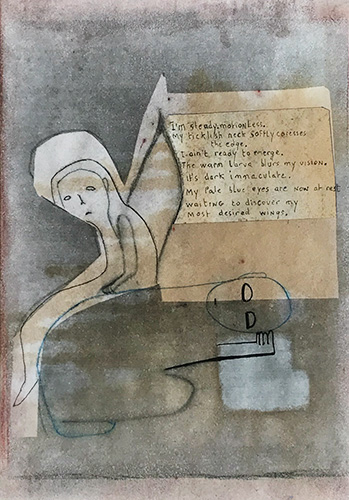 I'm steady, motionless.
My ticklish neck softly caresses
the edge.
I ain't ready to emerge.
The warm larva blurs my vision.
it's dark immaculate.
My Pale blue eyes are now at rest
waiting to discover my
most desired wings.